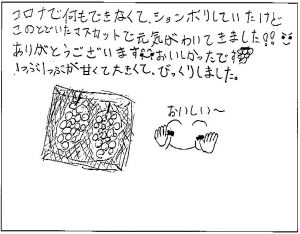 コロナで何もできなくて、ションボリしていたけど
このとどいたマスカットで元気がわいてきました!!
ありがとうございます おいしかったです
1っぷ1っぷが甘くて大きくて、びっくりしました。
おいしい〜